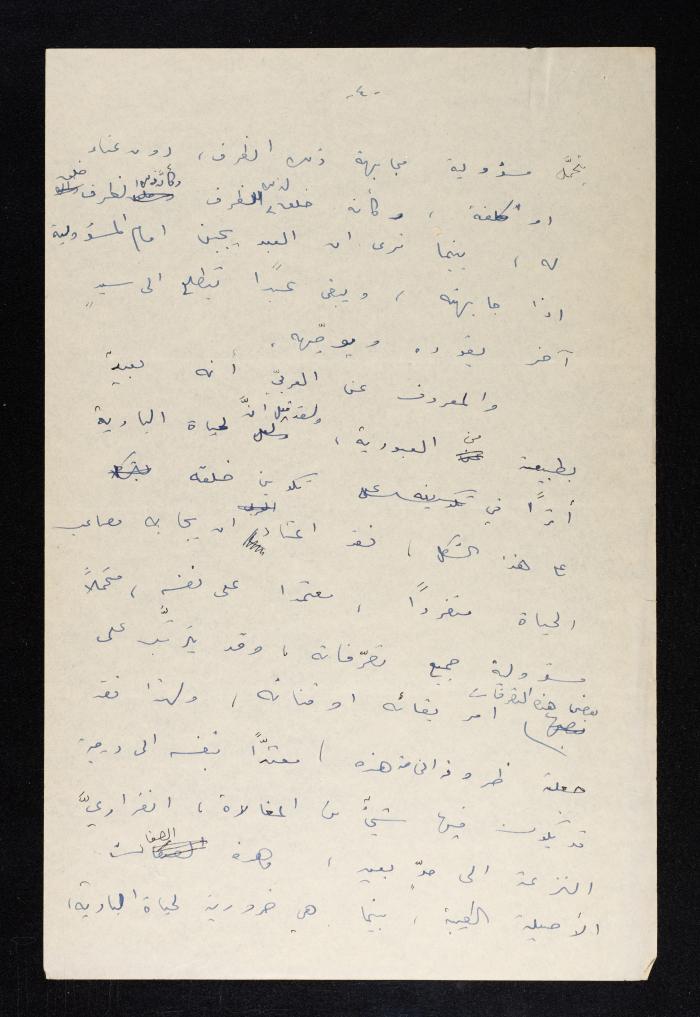 -٤-
يتحمَّل مسؤولية مجابهة ذلك الظرف، دون عناء
او كلفة، وكأنه خلق لذلك الظرف وكأنَّ ذلك الظرف خلق
له، بينما نرى ان العبد يجبن امام المسؤولية
اذا جابهته، ويبقى عبدًا يتطلع الى سيدٍ
آخر يقوده ويوجّهه.
والمعروف عن العربيّ أنه بعيد
بطبيعته من العبودية، ولقد قيل انَّ لحياة البادية
أثرًا في تكوين خلقه
على هذا الشكل، فقد اعتاد ان يجابه مصاعب
الحياة منفردًا، معتمدا على نفسه، متحملاً
مسؤولية جميع تصرّفاته، وقد يترتّب على
بعض هذه التصرفات امر بقائه او فنائه، ولهذا فقد
جعلته ظروفه هذه معتدًّا بنفسه الى درجة
قد يكون فيها شيءٌ من المغالاة، انفراديَّ
النزعة الى حدٍّ بعيد، وهذه الصفات
الأصيلة الطيبة، بينما هي ضرورية لحياة البادية،